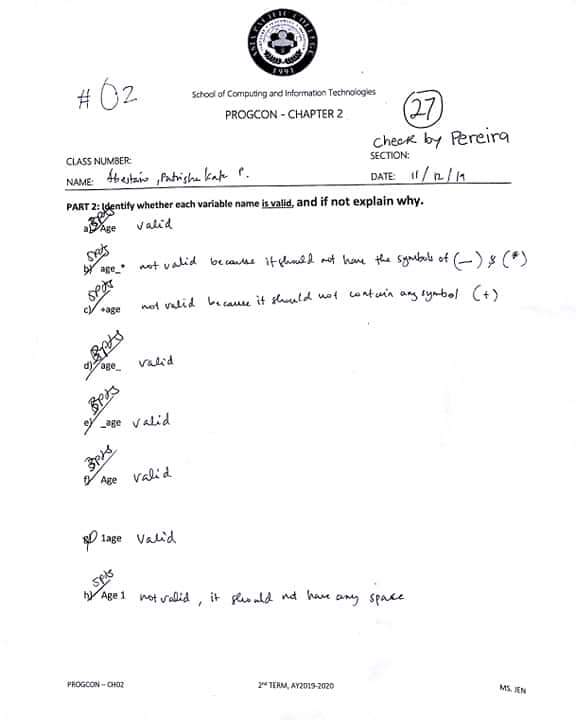 ASIA PACIFIC COLLEGE
1991
#02
School of Computing and Information Technologies
PROGCON - CHAPTER 2
27
check by Pereira
CLASS NUMBER:
SECTION:
NAME: P.
DATE: 11/12/19
PART 2: Identify whether each variable name is valid, and if not explain why.
3pts
a) Age valid
5pts
b) age_* not valid because it should not have the symbols of (_) & (*)
5pts
c) +age not valid because it should not contain any symbol (+)
3pts
d) age_ valid
3pts
e) _age valid
3pts
f) Age valid
g) 1age valid
5pts
h) Age 1 not valid, it should not have any space
PROGCON – CH02
2ND TERM, AY2019-2020
MS. JEN